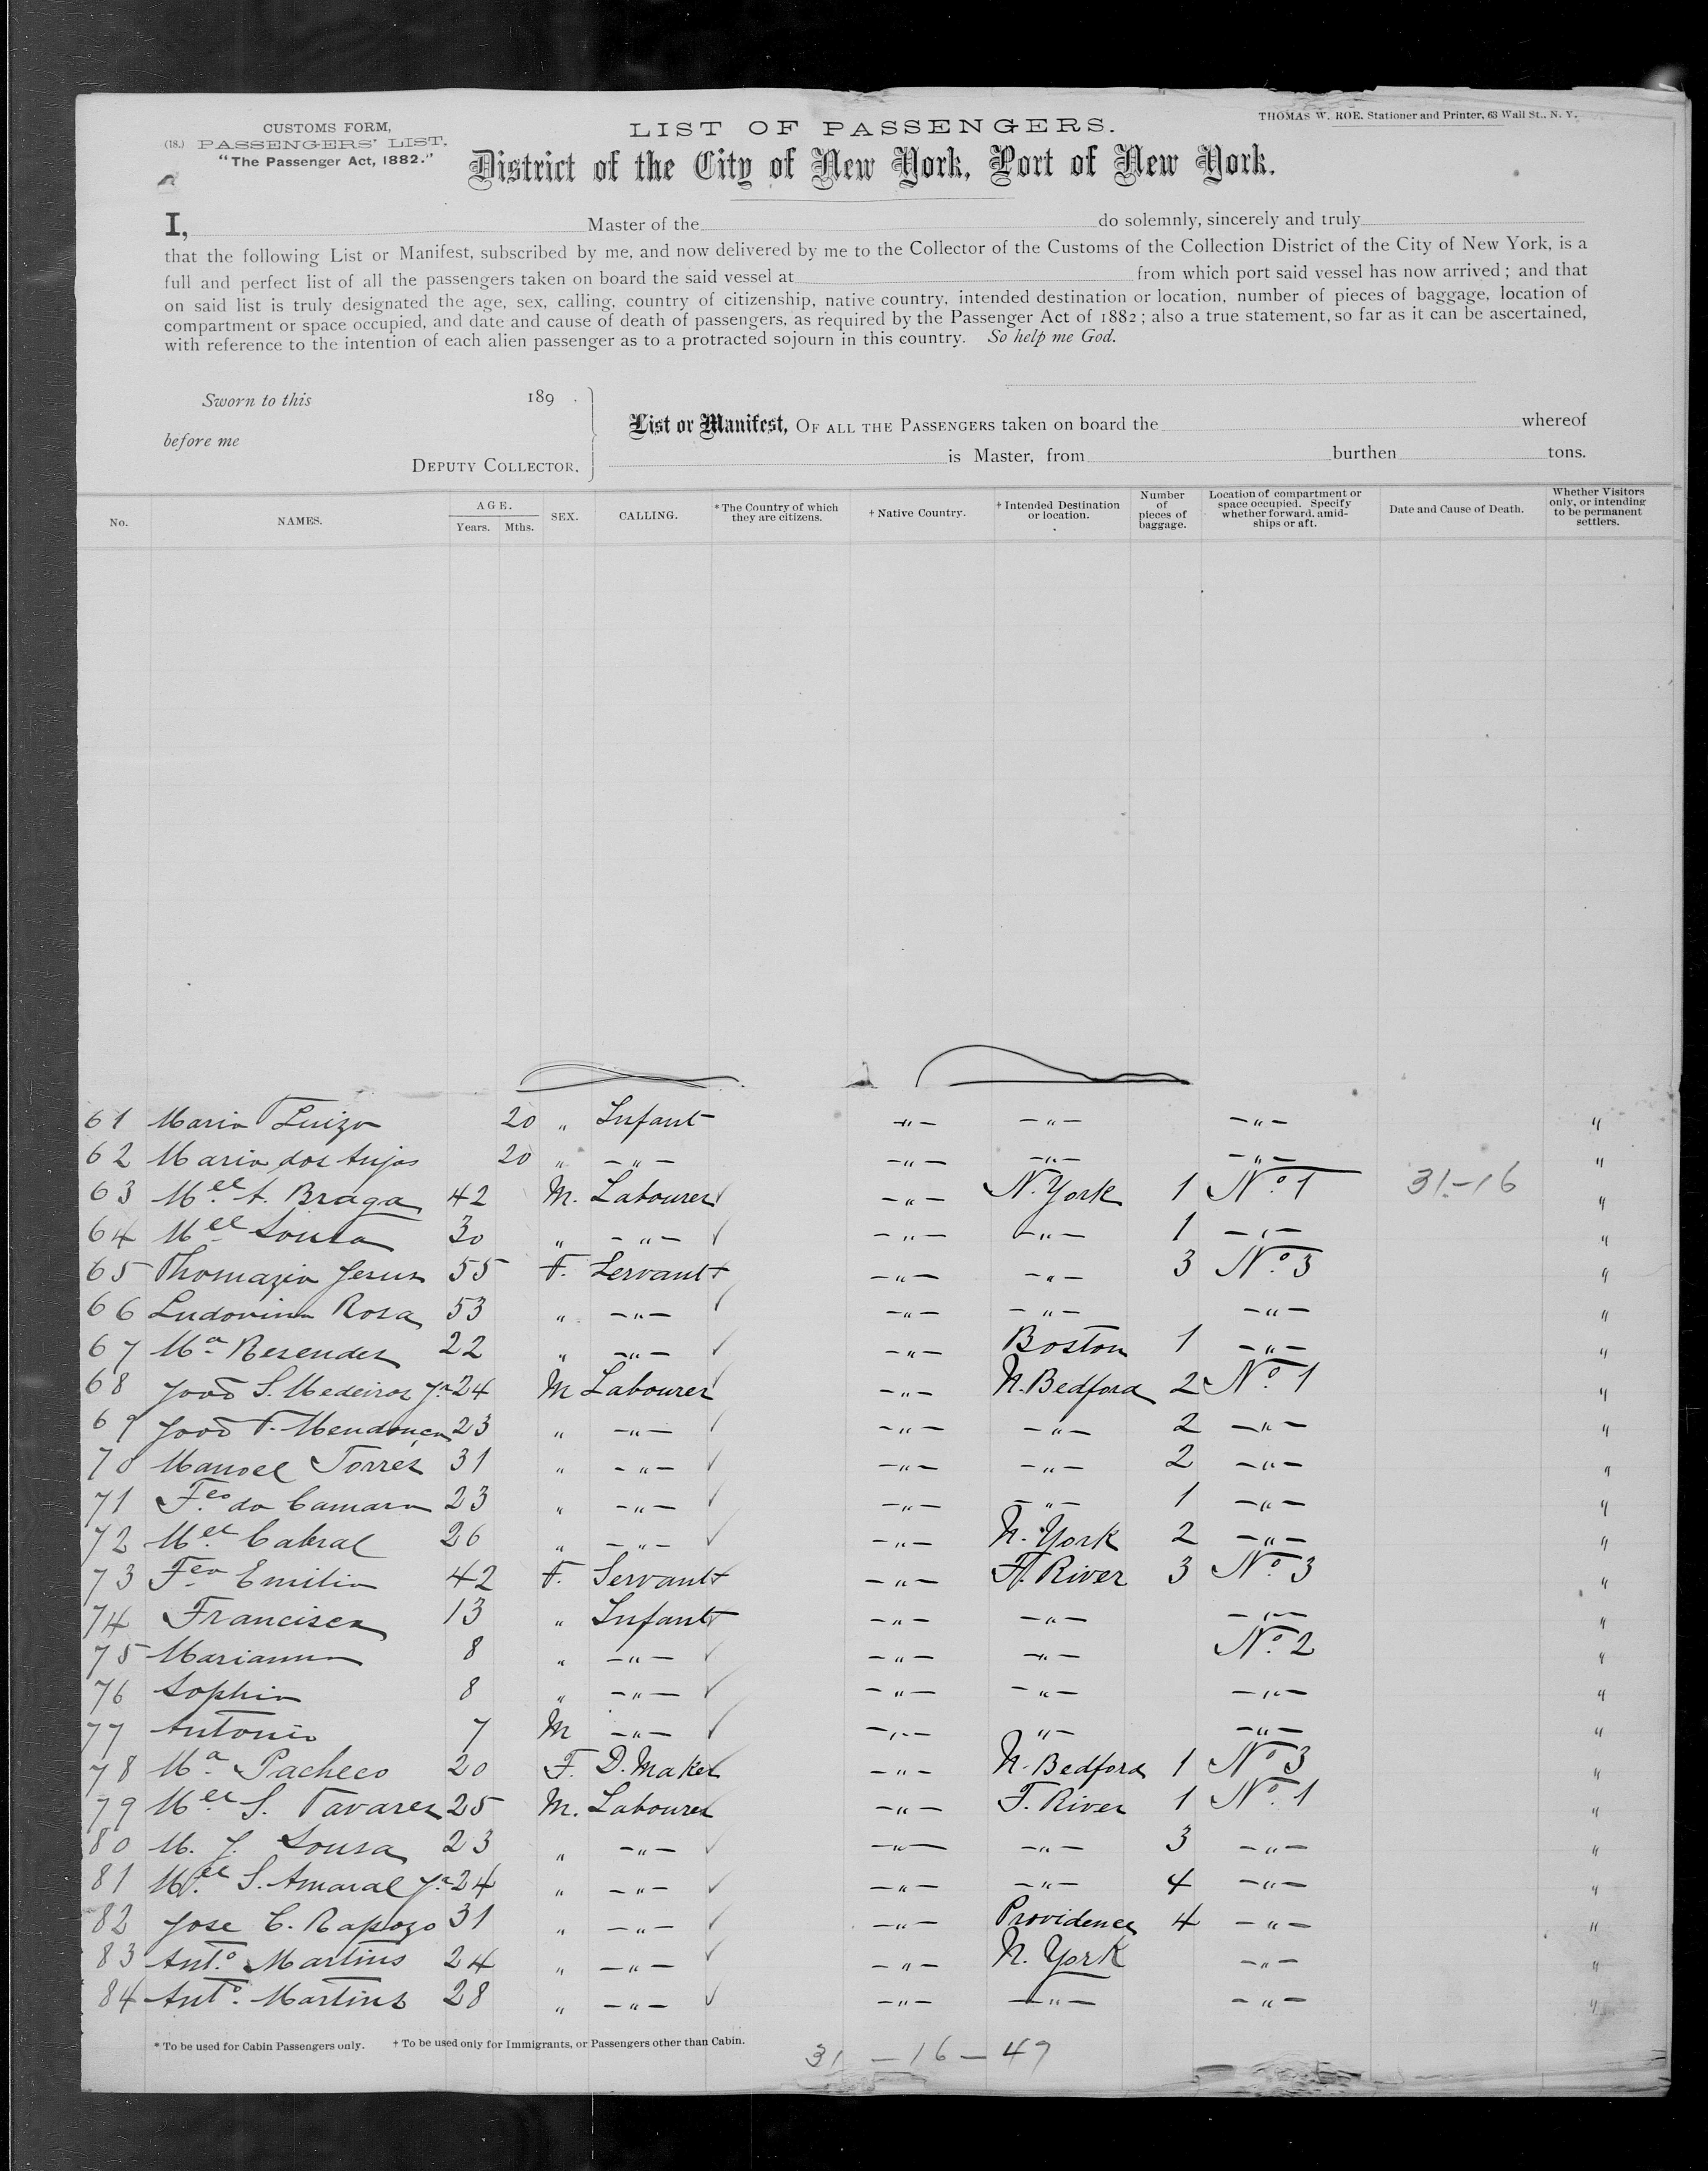 CUSTOMS FORM,
(18.) PASSENGERS' LIST.
"The Passenger Act, 1882."
LIST OF PASSENGERS.
THOMAS W. ROE. Stationer and Printer, 63 Wall St., N. Y.
District of the City of New York, Port of New York.
I, Master of the do solemnly, sincerely and truly
that the following List or Manifest, subscribed by me, and now delivered by me to the Collector of the Customs of the Collection District of the City of New York, is a
full and perfect list of all the passengers taken on board the said vessel at from which port said vessel has now arrived ; and that
on said list is truly designated the age, sex, calling, country of citizenship, native country, intended destination or location, number of pieces of baggage, location of
compartment or space occupied, and date and cause of death of passengers, as required by the Passenger Act of 1882 ; also a true statement, so far as it can be ascertained,
with reference to the intention of each alien passenger as to a protracted sojourn in this country. So help me God.
Sworn to this 189 .
before me
DEPUTY COLLECTOR.
List or Manifest, OF ALL THE PASSENGERS taken on board the whereof
is Master, from burthen tons.
No. NAMES. AGE. Years. Mths. SEX. CALLING. * The Country of which they are citizens. † Native Country. † Intended Destination or location. Number of pieces of baggage. Location of compartment or space occupied. Specify whether forward, amid-ships or aft. Date and Cause of Death. Whether Visitors only, or intending to be permanent settlers.
61 Maria Luiza 20 " Infant -"- -"- -"- "
62 Maria dos Anjos 20 " -"- -"- -"- -"- "
63 Mel A. Braga 42 M. Labourer ✓ -"- N. York 1 No 1 31-16 "
64 Mel Sousa 30 " -"- ✓ -"- -"- 1 -"- "
65 Thomazia Jesus 55 F. Servant -"- -"- 3 No 3 "
66 Ludovina Rosa 53 " -"- ✓ -"- -"- -"- "
67 Ma Resendes 22 " -"- ✓ -"- Boston 1 -"- "
68 João S. Medeiros Jr 24 M Labourer ✓ -"- N. Bedford 2 No 1 "
69 João F. Mendonça 23 " -"- ✓ -"- -"- 2 -"- "
70 Manoel Torres 31 " -"- ✓ -"- -"- 2 -"- "
71 Fco da Camara 23 " -"- ✓ -"- -"- 1 -"- "
72 Mel Cabral 26 " -"- ✓ -"- N. York 2 -"- "
73 Fca Emilia 42 F. Servant -"- F. River 3 No 3 "
74 Francisca 13 " Infant -"- -"- -"- "
75 Marianna 8 " -"- ✓ -"- -"- No 2 "
76 Sophia 8 " -"- ✓ -"- -"- -"- "
77 Antonio 7 M -"- ✓ -"- "- -"- "
78 Ma Pacheco 20 F. D. Maker ✓ -"- N. Bedford 1 No 3 "
79 Mel S. Tavares 25 M. Labourer -"- F. River 1 No 1 "
80 M. J. Sousa 23 " -"- ✓ -"- -"- 3 -"- "
81 Mel S. Amaral Jr 24 " -"- ✓ -"- -"- 4 -"- "
82 Jose C. Rapozo 31 " -"- ✓ -"- Providence 4 -"- "
83 Anto Martins 24 " -"- ✓ -"- N. York -"- "
84 Anto Martins 28 " -"- ✓ -"- -"- -"- "
* To be used for Cabin Passengers only. † To be used only for Immigrants, or Passengers other than Cabin.
31 - 16 - 47